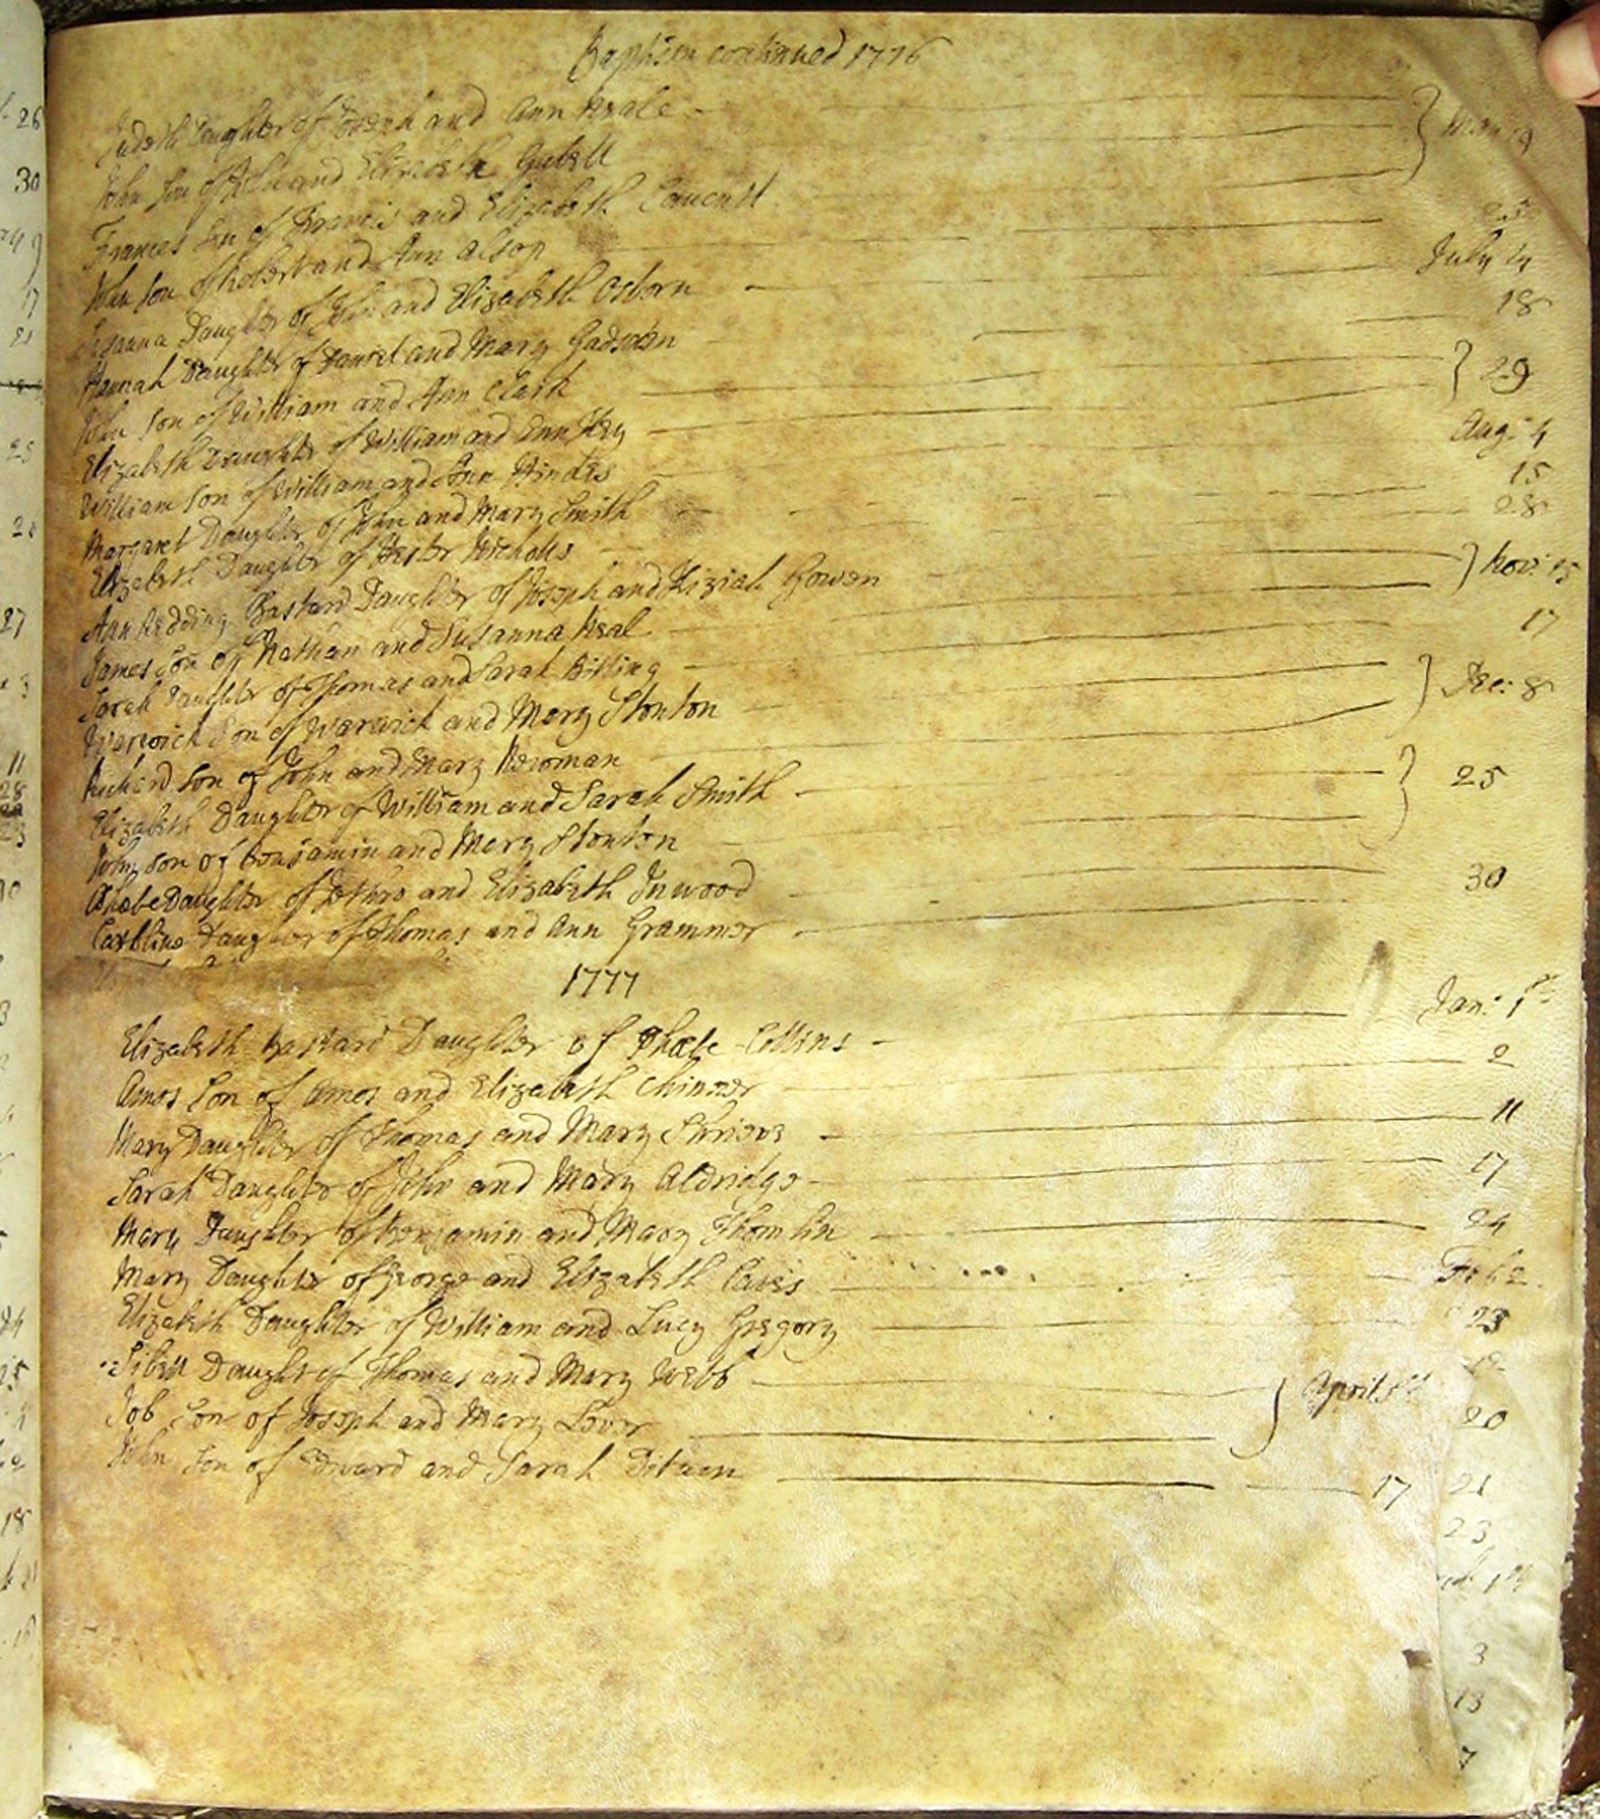 Baptism continued 1776
Judeth Daughter of Joseph and Ann Neale
John Son of John and Elizabeth Gubell
Frances Son of Francis and Elizabeth
John Son of Robert and Ann Alsop 25
Susanna Daughter of John and Elizabeth Osborn July 14
Hannah Daughter of Daniel and Mary Gadsden 18
John Son of William and Ann Clark
Elizabeth Daughter of William and Ann Hey 29
William Son of William and Ann Hindes Aug: 4
Margaret Daughter of John and Mary Smith 15
Elizabeth Daughter of Hester Nicholls 28
Ann Redding Bastard Daughter of Joseph and Kiziah Bowen Nov: 15
James Son of Nathan and Susanna Neal
Sarah Daughter of Thomas and Sarah Billing 17
Warwick Son of Warwick and Mary Stonton Dec: 8
Richard Son of John and Mary Newman
Elizabeth Daughter of William and Sarah Smith 25
John Son of Benjamin and Mary Stonton
Phebe Daughter of Jethro and Elizabeth Inwood 30
Caroline Daughter of Thomas and Ann Grammer
1777
Elizabeth Bastard Daughter of Phœbe Collins Jan: 1st
Amos Son of Amos and Elizabeth Chinner 2
Mary Daughter of Thomas and Mary Shrieve 11
Sarah Daughter of John and Mary Aldridge 17
Mary Daughter of Benjamin and Mary Thomlin 24
Mary Daughter of George and Elizabeth Caves Feb 2
Elizabeth Daughter of William and Lucy Gregory 23
Sibell Daughter of Thomas and Mary Webb April
Job Son of Joseph and Mary Lover 20
John Son of Edward and Sarah 17 21
23
3
13
7